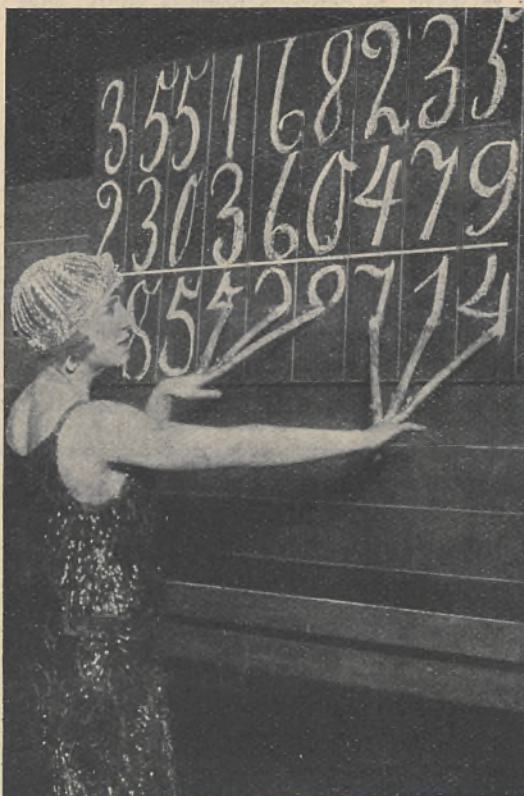 355168235
230360479
85528714